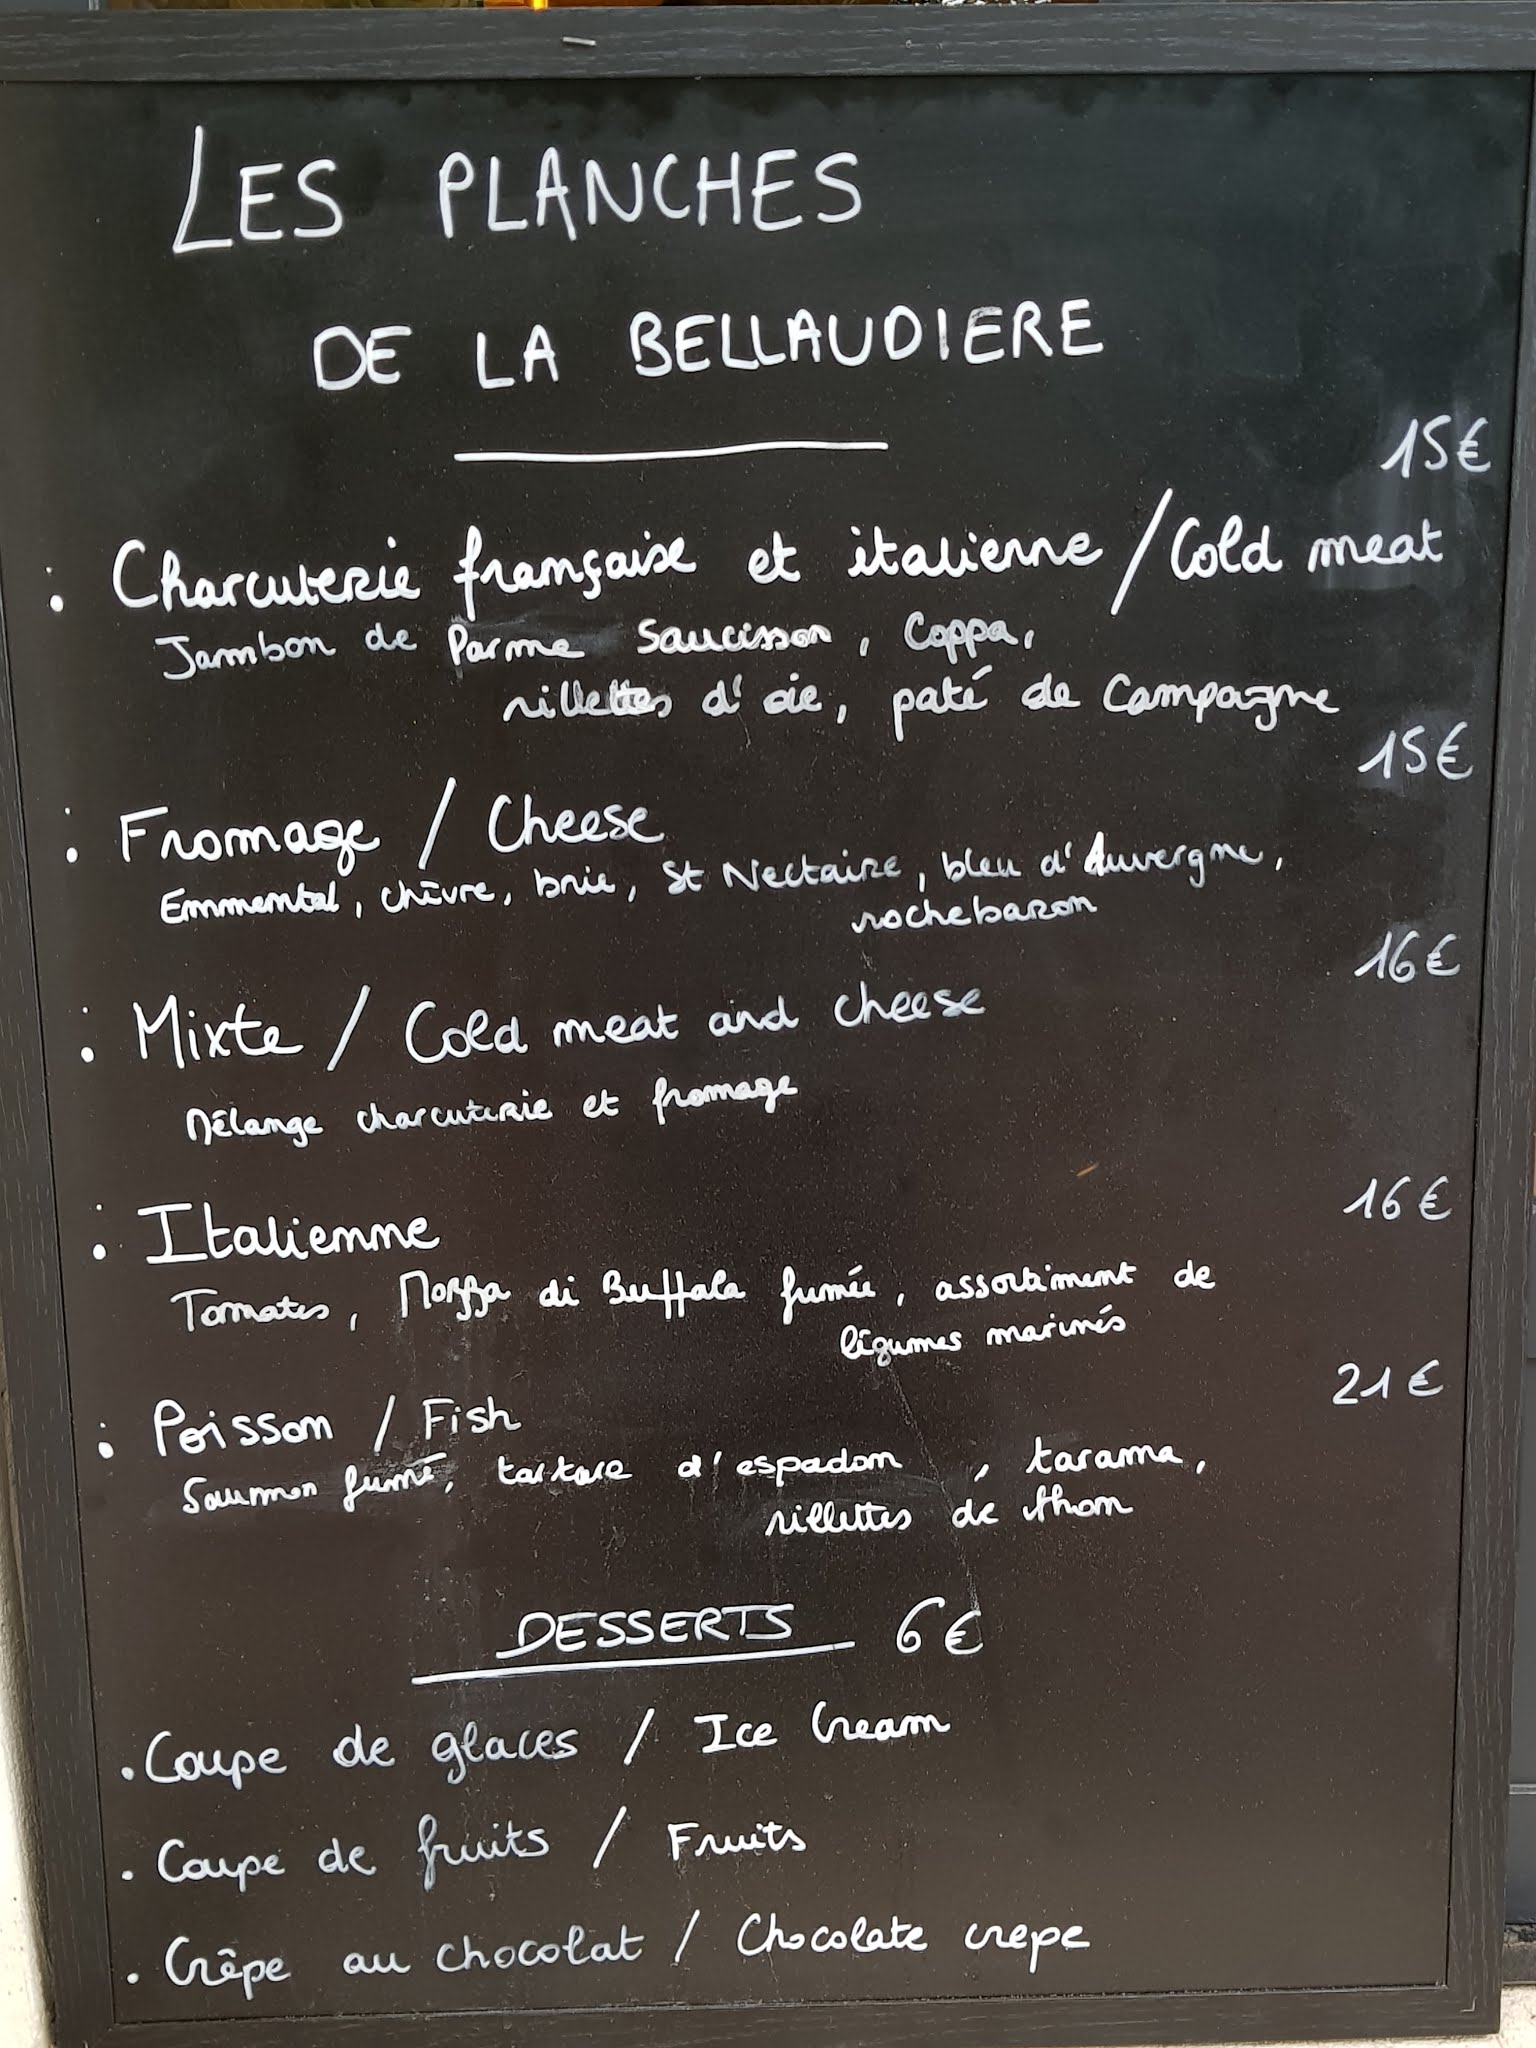 LES PLANCHES
DE LA BELLAUDIERE
15€
: Charcuterie française et italienne / Cold meat
Jambon de Parme Saucisson, Coppa,
rillettes d'oie, paté de Campagne
15€
: Fromage / Cheese
Emmental, chèvre, brie, St Nectaire, bleu d'Auvergne,
rochebaron
16€
: Mixte / Cold meat and cheese
Mélange charcuterie et fromage
16€
: Italienne
Tomates, Mozza di Buffala fumée, assortiment de
légumes marinés
21€
: Poisson / Fish
Saumon fumé, tartare d'espadon , tarama,
rillettes de thon
DESSERTS 6€
. Coupe de glaces / Ice Cream
. Coupe de fruits / Fruits
. Crêpe au chocolat / Chocolate crepe